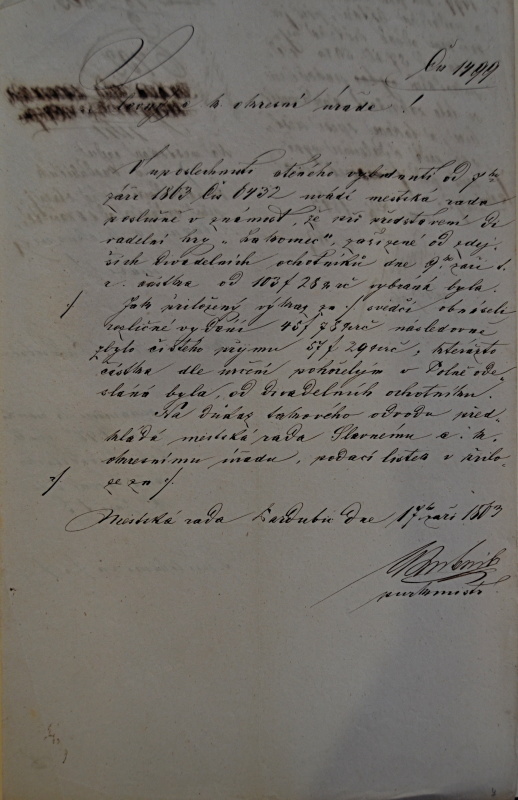 Čís 1499
k. okresní úřade!
V uposlechnutí ctěného vyzvání od 7ho
září 1863 čís 6432 uvádí městská rada
poslušně v známost, že při představení di
vadelní hry „Lakomec“, pořízené od zdej
ších divadelních ochotníků dne 9ho září t.
r. částka od 103 f 28 kr č vybrána byla.
Jak přiložený výkaz za ·/· svědčí obnášeli
rozličné vydání 45 f 73 kr č následovně
zbylo čistého příjmu 57 f 29 kr č, kterážto
částka dle určení pohořelým v Polně ode
slána byla, od divadelních ochotníků.
Na důkaz takového odvodu před
kládá městská rada Slavnému c. k.
okresnímu úřadu, podací lístek v přílo
ze za ·/·
Městská rada Pardubic dne 17ho září 1863
purkmistr